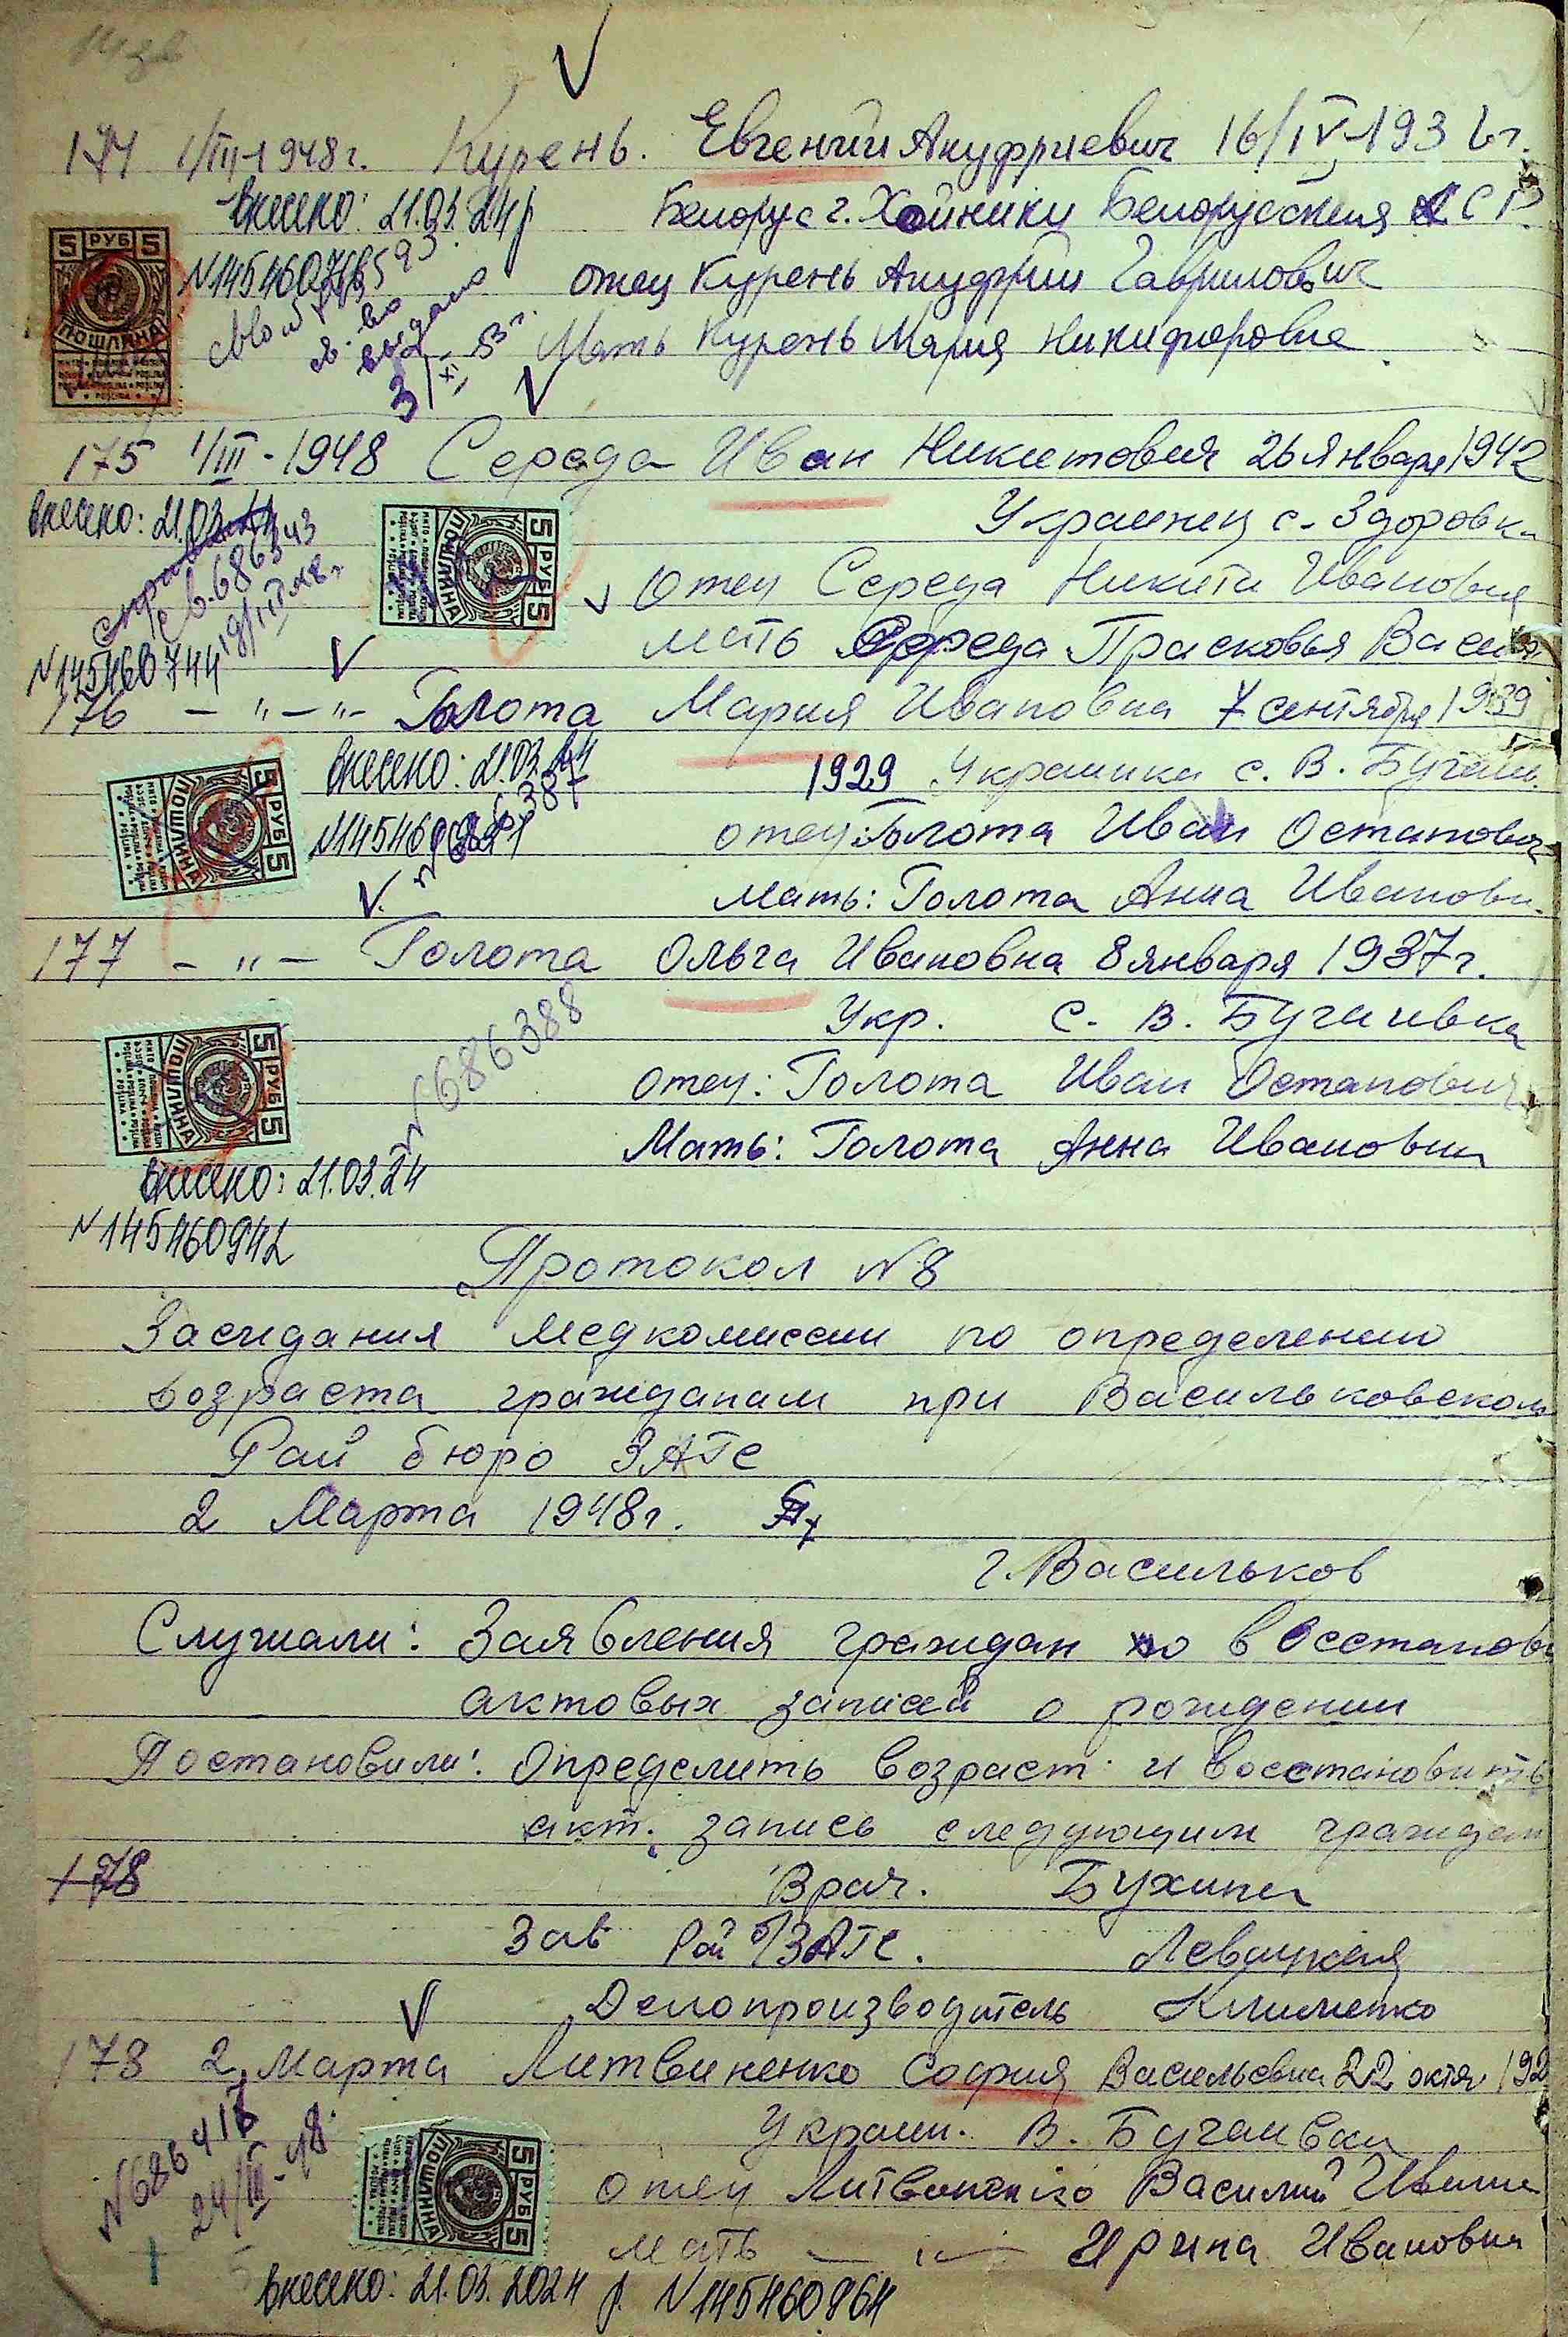 174 1/III-1948г. Курень. Евгений Ануфриевич 16/IV-1936г.
Внесено: 21.03.24р Белорус г. Хойники Белорусская ССР
N145460718 Отец Курень Ануфрий Гаврилович
св-во выдано 3/XI-53г. Мать Курень Мария Никифоровна
5 РУБ 5
ПОШЛИНА
175 1/III-1948 Середа Иван Никитович 26 января 1942
Внесено: 21.03.24 Украинец с. Здоровка
св. 686343 Отец Середа Никита Иванович
19/III 48г. мать Середа Прасковья Васил
N145460744
5 РУБ 5
ПОШЛИНА
176 - " - " - Голота Мария Ивановна 7 сентября 1939
Внесено: 21.03.24 1929 Украинка с. В. Бугаи
отец: Голота Иван Остапович
Мать: Голота Анна Ивановн
5 РУБ 5
ПОШЛИНА
177 - " - Голота Ольга Ивановна 8 января 1937г.
N 686388 Укр. с. В. Бугаивка
отец: Голота Иван Остапович
Мать: Голота Анна Ивановна
5 РУБ 5
ПОШЛИНА
Внесено: 21.03.24
N145460942
Протокол N8
Заседания Медкомиссии по определению
возраста гражданам при Васильковском
Рай бюро ЗАГС
2 Марта 1948г.
г. Васильков
Слушали: Заявления граждан о восстанов
актовых записей о рождении
Постановили: Определить возраст и восстановить
акт. запись следующим граждан
178
Врач. Бухина
Зав Рай б/ЗАГС. Левицкая
Делопроизводитель Клименко
178 2 Марта Литвиненко София Васильевна 22 октя 192
N686418 Украин. В. Бугаивка
24/III-48. отец Литвиненко Василий Ивано
мать - " - Ирина Ивановна
5 РУБ 5
ПОШЛИНА
Внесено: 21.03.2024 р. N145460964